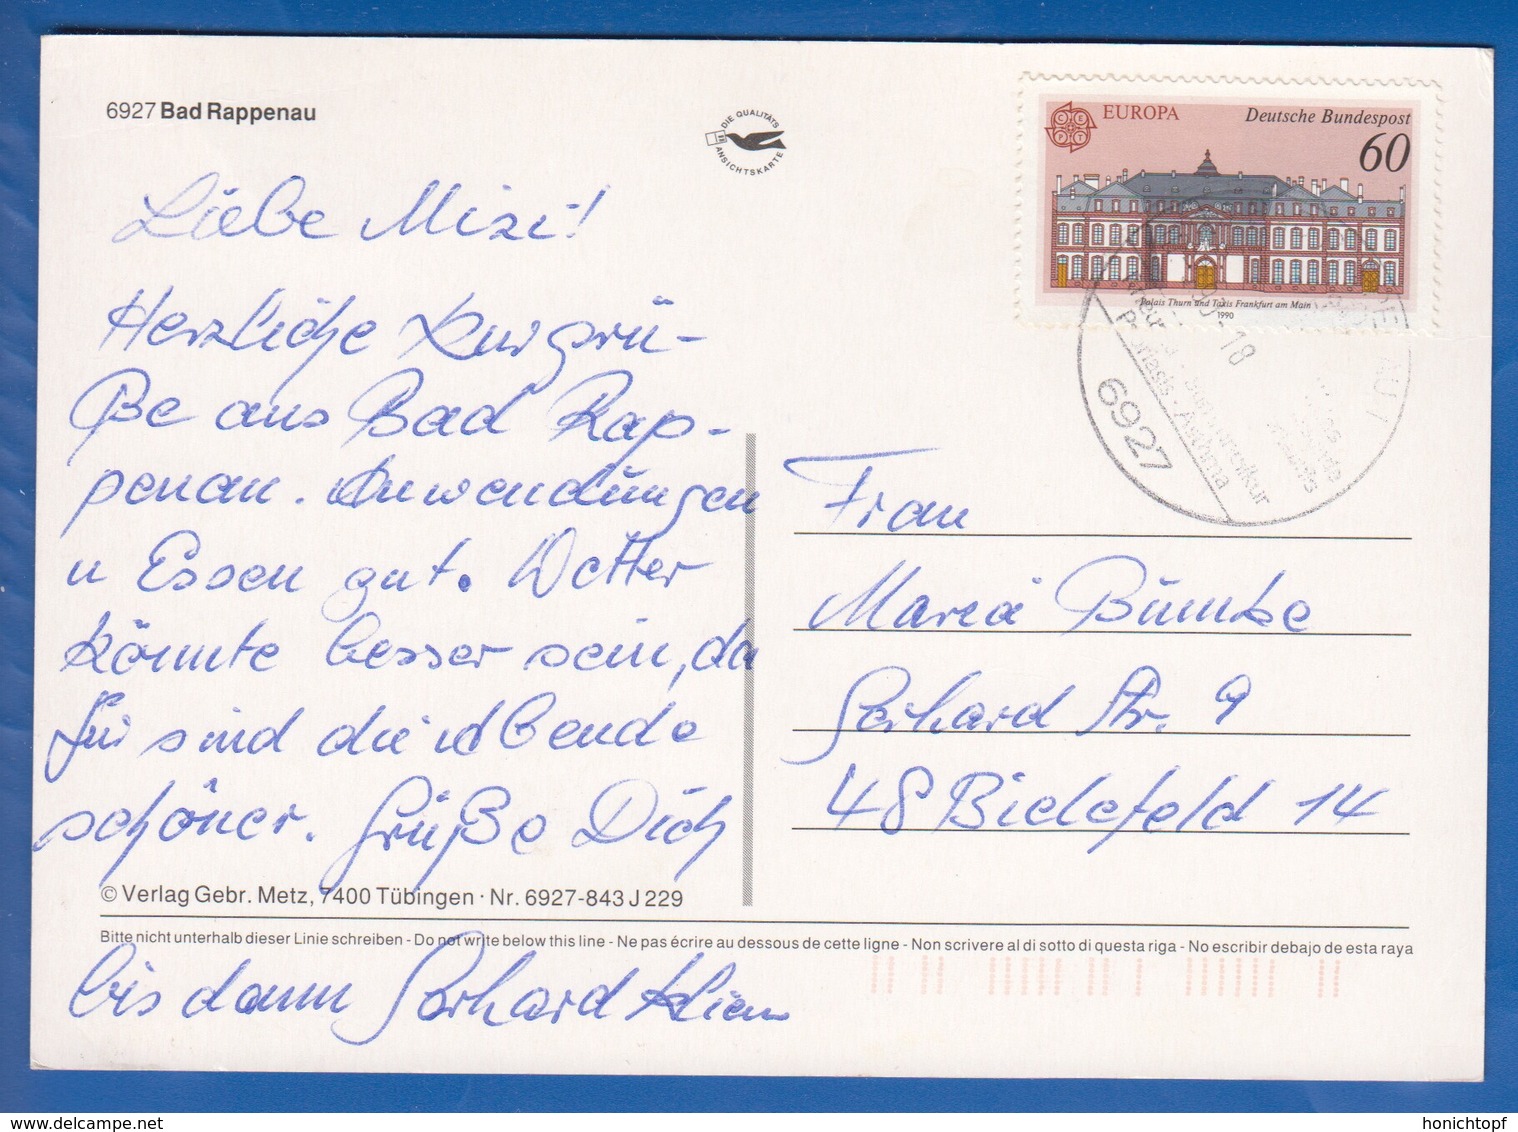 6927 Bad Rappenau
DIE QUALITÄTS
ANSICHTSKARTE
EUROPA
Deutsche Bundespost
60
CEPT
Palais Thurn und Taxis Frankfurt am Main
1990
6927
Psoriasis - Asthma
Liebe Mizi!
Herzliche Kurgrü-
ße aus Bad Rap-
penau. Anwendungen
u Essen gut. Wetter
könnte besser sein, da
für sind die Abende
schöner. Grüße Dich
Frau
Maria Bümke
Gerhard Str. 9
48 Bielefeld 14
© Verlag Gebr. Metz, 7400 Tübingen · Nr. 6927-843 J 229
Bitte nicht unterhalb dieser Linie schreiben - Do not write below this line - Ne pas écrire au dessous de cette ligne - Non scrivere al di sotto di questa riga - No escribir debajo de esta raya
bis dann Gerhard
honichtopf